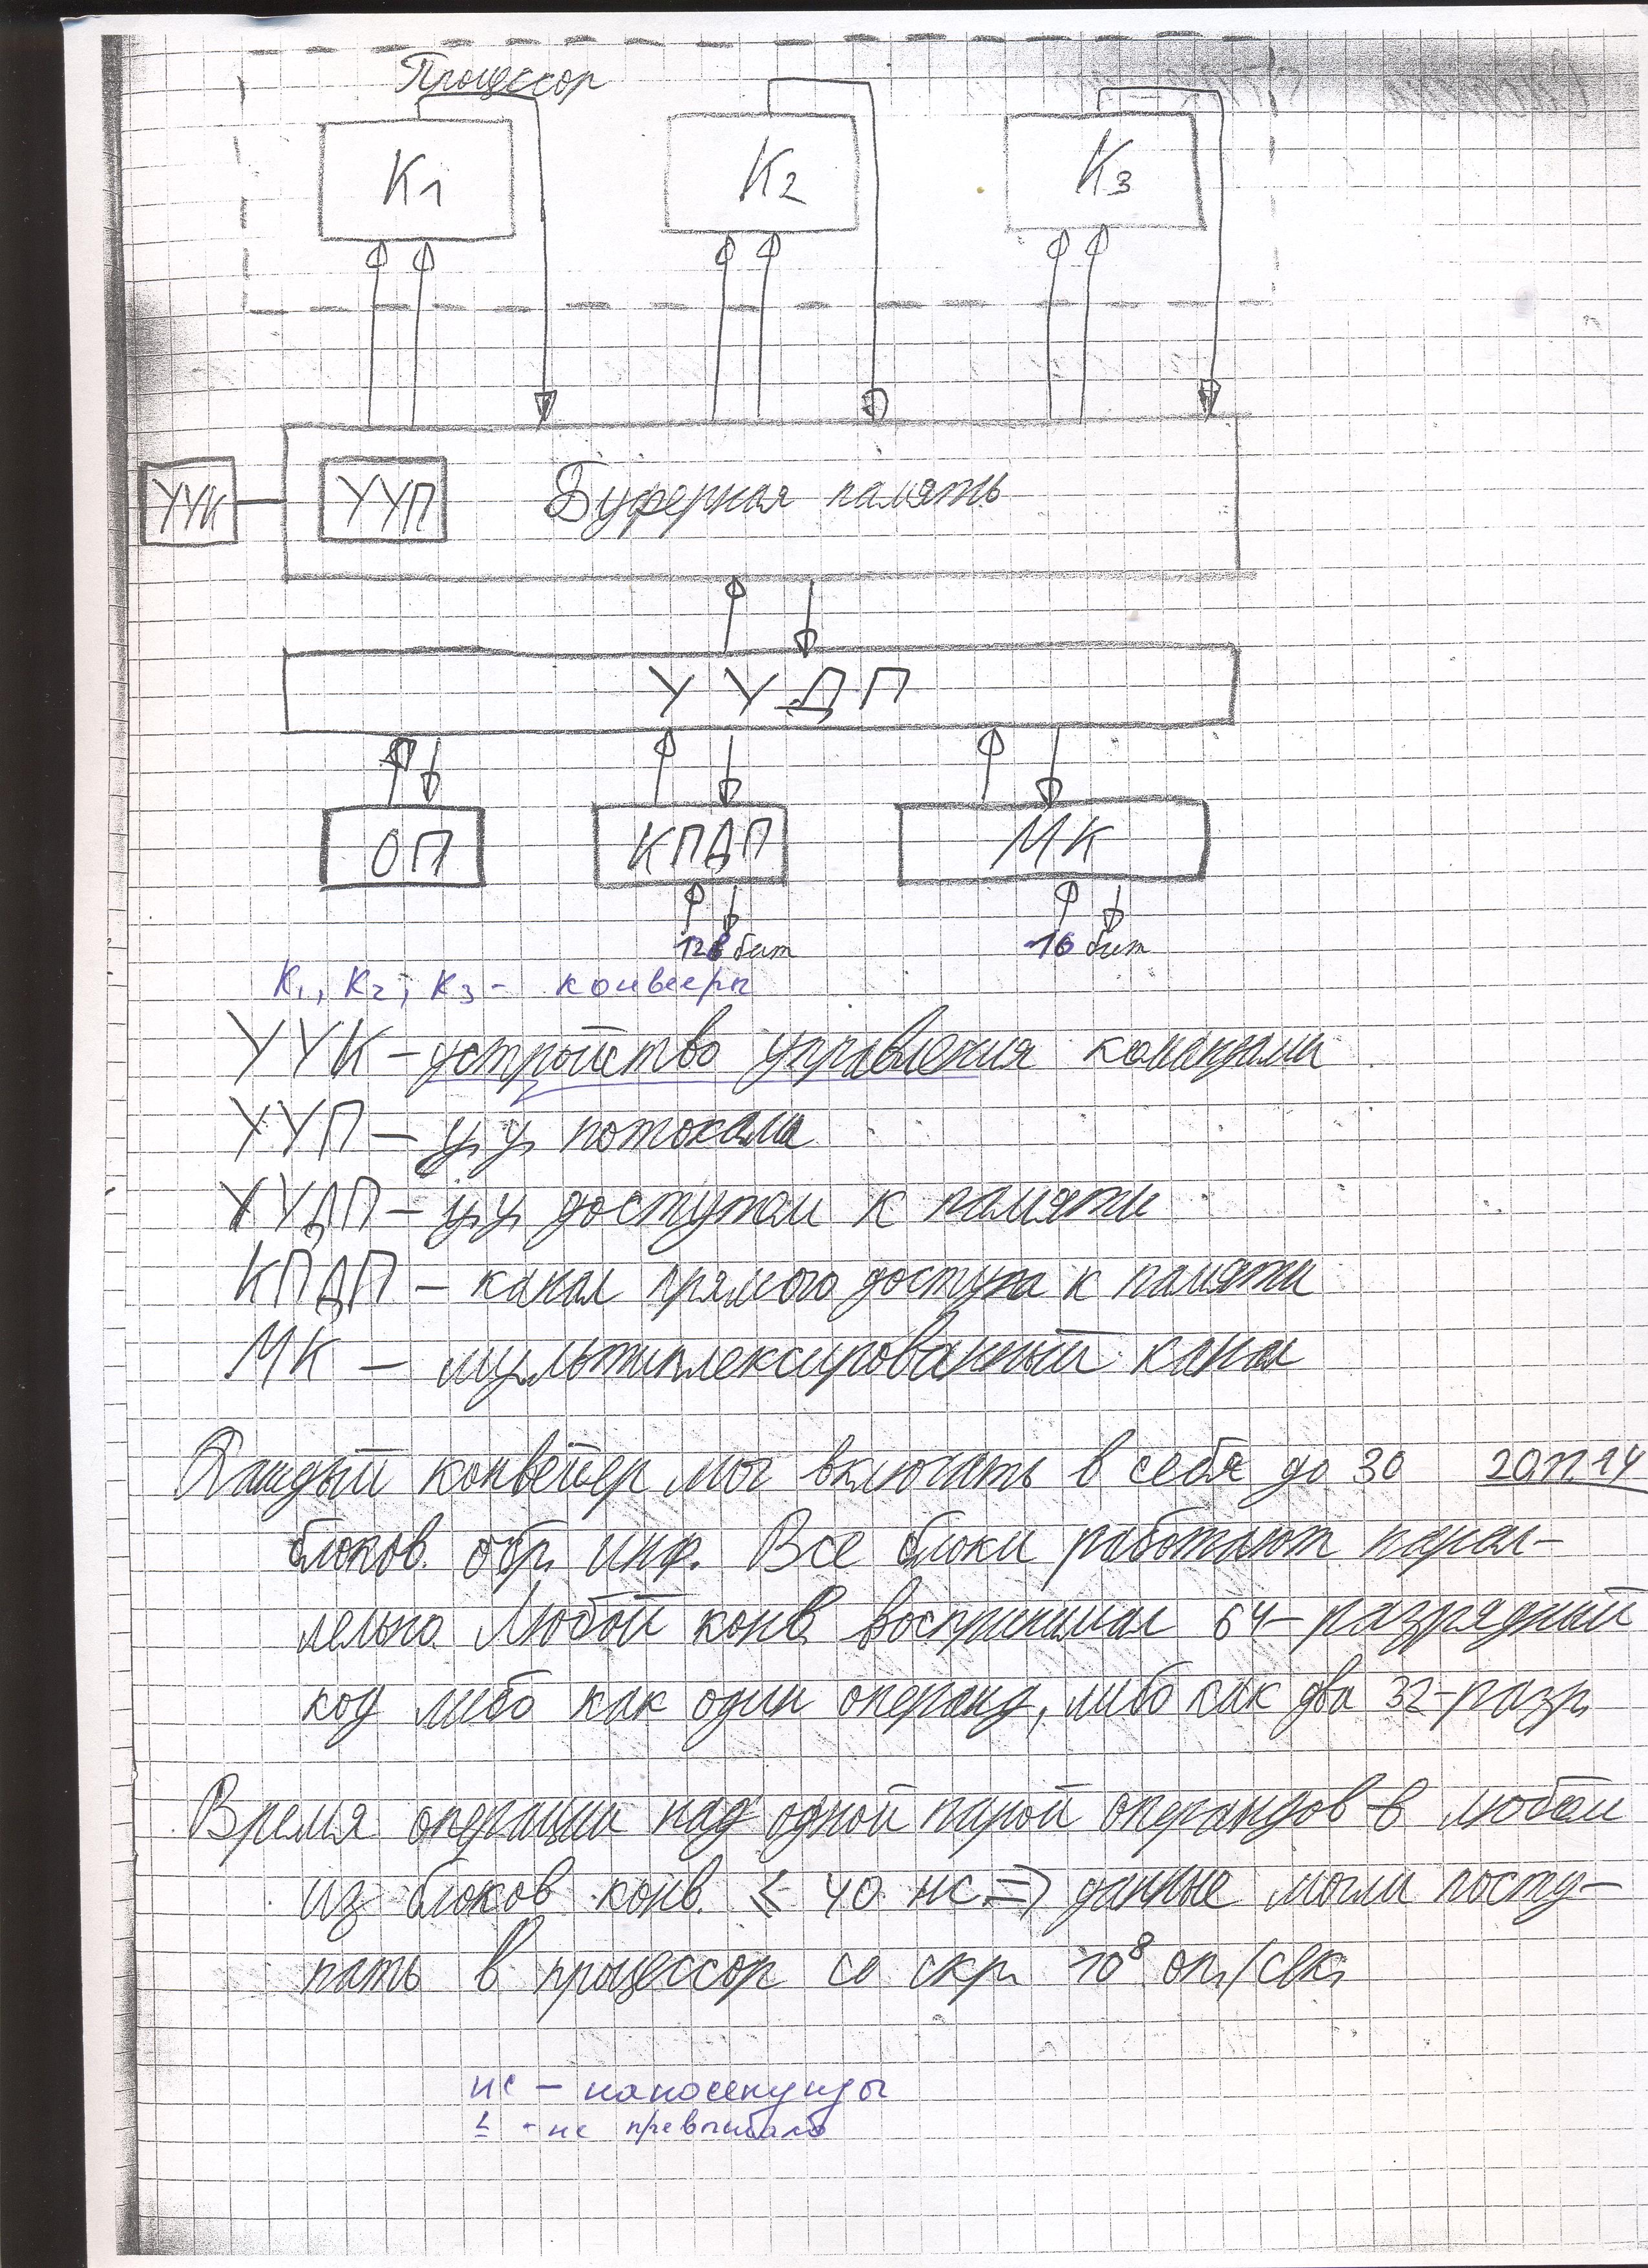 Процессор
К1 К2 К3
УУК УУП Буферная память
УУДП
ОП КПДП МК
128 бит 16 бит
К1, К2, К3 - конвееры
УУК – устройство управления командами
УУП – у. у. потоками
УУДП – у. у. доступом к памяти
КПДП – канал прямого доступа к памяти
МК – мультиплексированный канал
Каждый конвейер мог включать в себя до 30
блоков обр. инф. Все блоки работают парал-
лельно. Любой конв. воспринимал 64-разрядный
код либо как один операнд, либо как два 32-разр.
Время операции над одной парой операндов в любом
из блоков конв. ≤ 40 нс. ⇒ данные могли посту-
пать в процессор со скр. 10⁸ оп./сек.
нс – наносекунды
≤ - не превышало